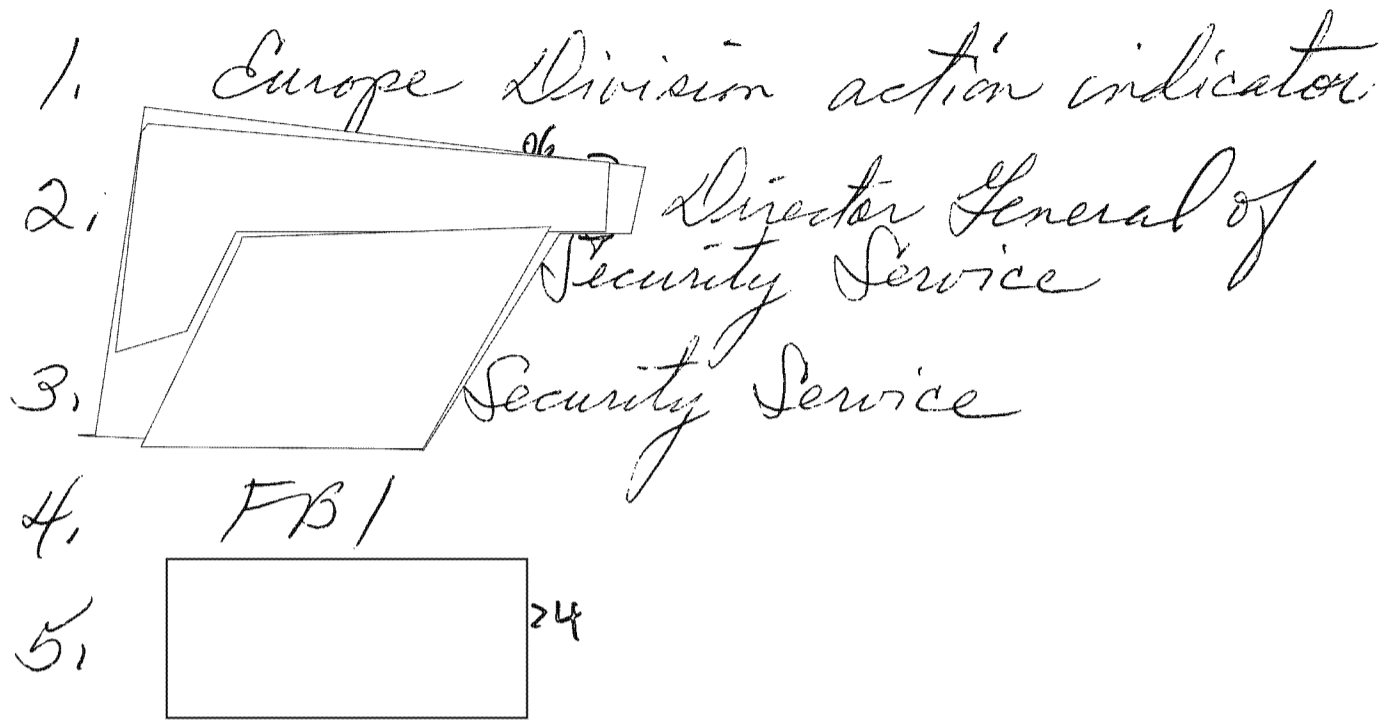 1. Europe Division action indicator.
06
2. Director General of
Security Service
3. Security Service
4. FBI
5. 24